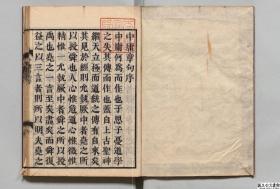 中庸章句序
中庸何為而作也子思子憂道學
之失其傳而作也蓋自上古聖神
繼天立極而道統之傳有自來矣
其見於經則允執厥中者堯之所
以授舜也人心惟危道心惟微惟
精惟一允執厥中者舜之所以授
禹也堯之一言至矣盡矣而舜復
益之以三言者則所以明夫堯之